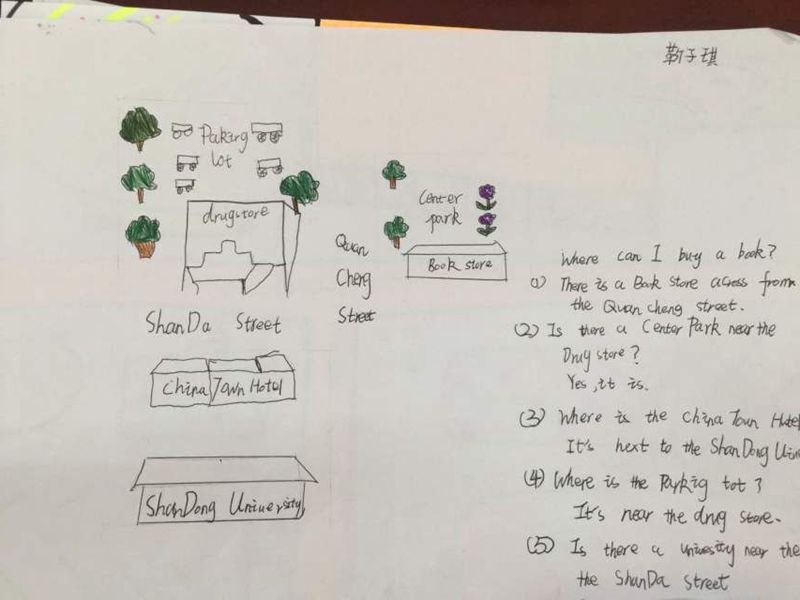 靳子琪
Paking
lot
drugstore
Center
park
Quan
Cheng
Street
Book store
ShanDa Street
China Town Hotel
ShanDong University
Where can I buy a book?
(1) There is a Book Store across from
the Quan cheng street.
(2) Is there a Center Park near the
Drug store?
Yes, it is.
(3) Where is the China Town Hotel
It's next to the ShanDong Unive
(4) Where is the Parkig tot?
It's near the drug store.
(5) Is there a univesity near the
the ShanDa street